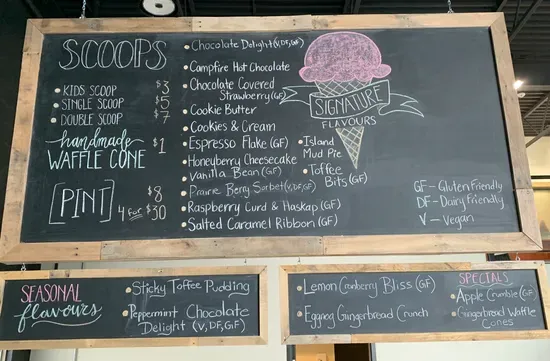 SCOOPS
• KIDS SCOOP $3
• SINGLE SCOOP $5
• DOUBLE SCOOP $7
handmade
WAFFLE CONE $1
[PINT] $8
4 for $30
• Chocolate Delight (V,DF,GF)
• Campfire Hot Chocolate
• Chocolate Covered
Strawberry (GF)
• Cookie Butter
• Cookies & Cream
• Espresso Flake (GF)
• Honeyberry Cheesecake
• Vanilla Bean (GF)
• Prairie Berry Sorbet (V,DF,GF)
• Raspberry Curd & Haskap (GF)
• Salted Caramel Ribbon (GF)
SIGNATURE
FLAVOURS
• Island
Mud Pie
• Toffee
Bits (GF)
GF - Gluten Friendly
DF - Dairy Friendly
V - Vegan
SEASONAL
flavours
• Sticky Toffee Pudding
• Peppermint Chocolate
Delight (V, DF, GF)
• Lemon Cranberry Bliss (GF)
• Eggnog Gingerbread Crunch
SPECIALS
• Apple Crumble (GF)
• Gingerbread Waffle
Cones